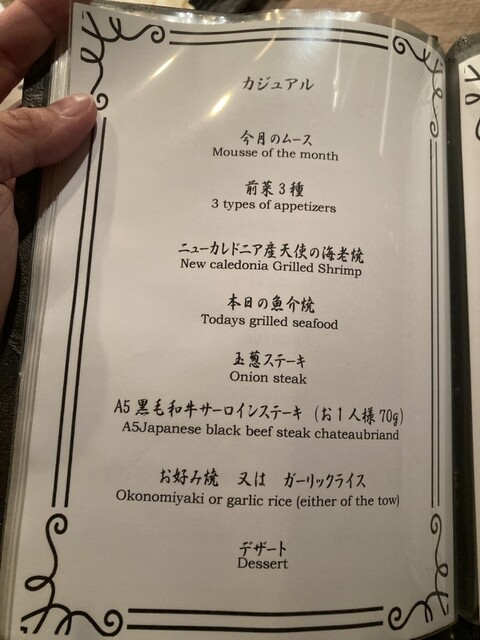 カジュアル
今月のムース
Mousse of the month
前菜3種
3 types of appetizers
ニューカレドニア産天使の海老焼
New caledonia Grilled Shrimp
本日の魚介焼
Todays grilled seafood
玉葱ステーキ
Onion steak
A5黒毛和牛サーロインステーキ（お1人様70g）
A5Japanese black beef steak chateaubriand
お好み焼　又は　ガーリックライス
Okonomiyaki or garlic rice (either of the tow)
デザート
Dessert